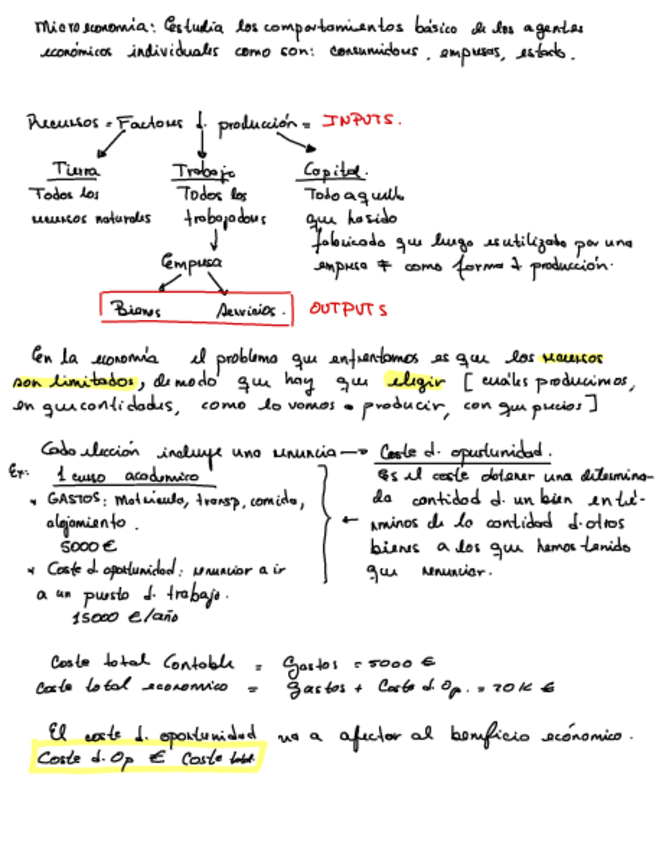 Microeconomía: Estudia los comportamientos básico de los agentes
económicos individuales como son: consumidores, empresas, estado.
Recursos = Factores d. producción = INPUTS.
Tierra Trabajo Capital.
Todos los Todos los Todo aquello
recursos naturales trabajadores que ha sido
fabricado que luego es utilizado por una
Empresa empresa como forma d producción.
Bienes Servicios. OUTPUTS
En la economía el problema que enfrentamos es que los recursos
son limitados, de modo que hay que elegir [cuáles producimos,
en que cantidades, como lo vamos a producir, con que precios]
Cada elección incluye una renuncia → Coste d. oportunidad.
Ex: 1 curso académico Es el coste obtener una determina-
* GASTOS: Matrícula, transp, comida, da cantidad d. un bien en té-
alojamiento. ← rminos de la cantidad d. otros
5000 € bienes a los que hemos tenido
* Coste d. oportunidad: renunciar a ir que renunciar.
a un puesto d. trabajo.
15000 €/año
Coste total Contable = Gastos = 5000 €
Coste total economico = gastos + Coste d. Op. = 20K €
El coste d. oportunidad va a afectar al beneficio económico.
Coste d. Op € Coste